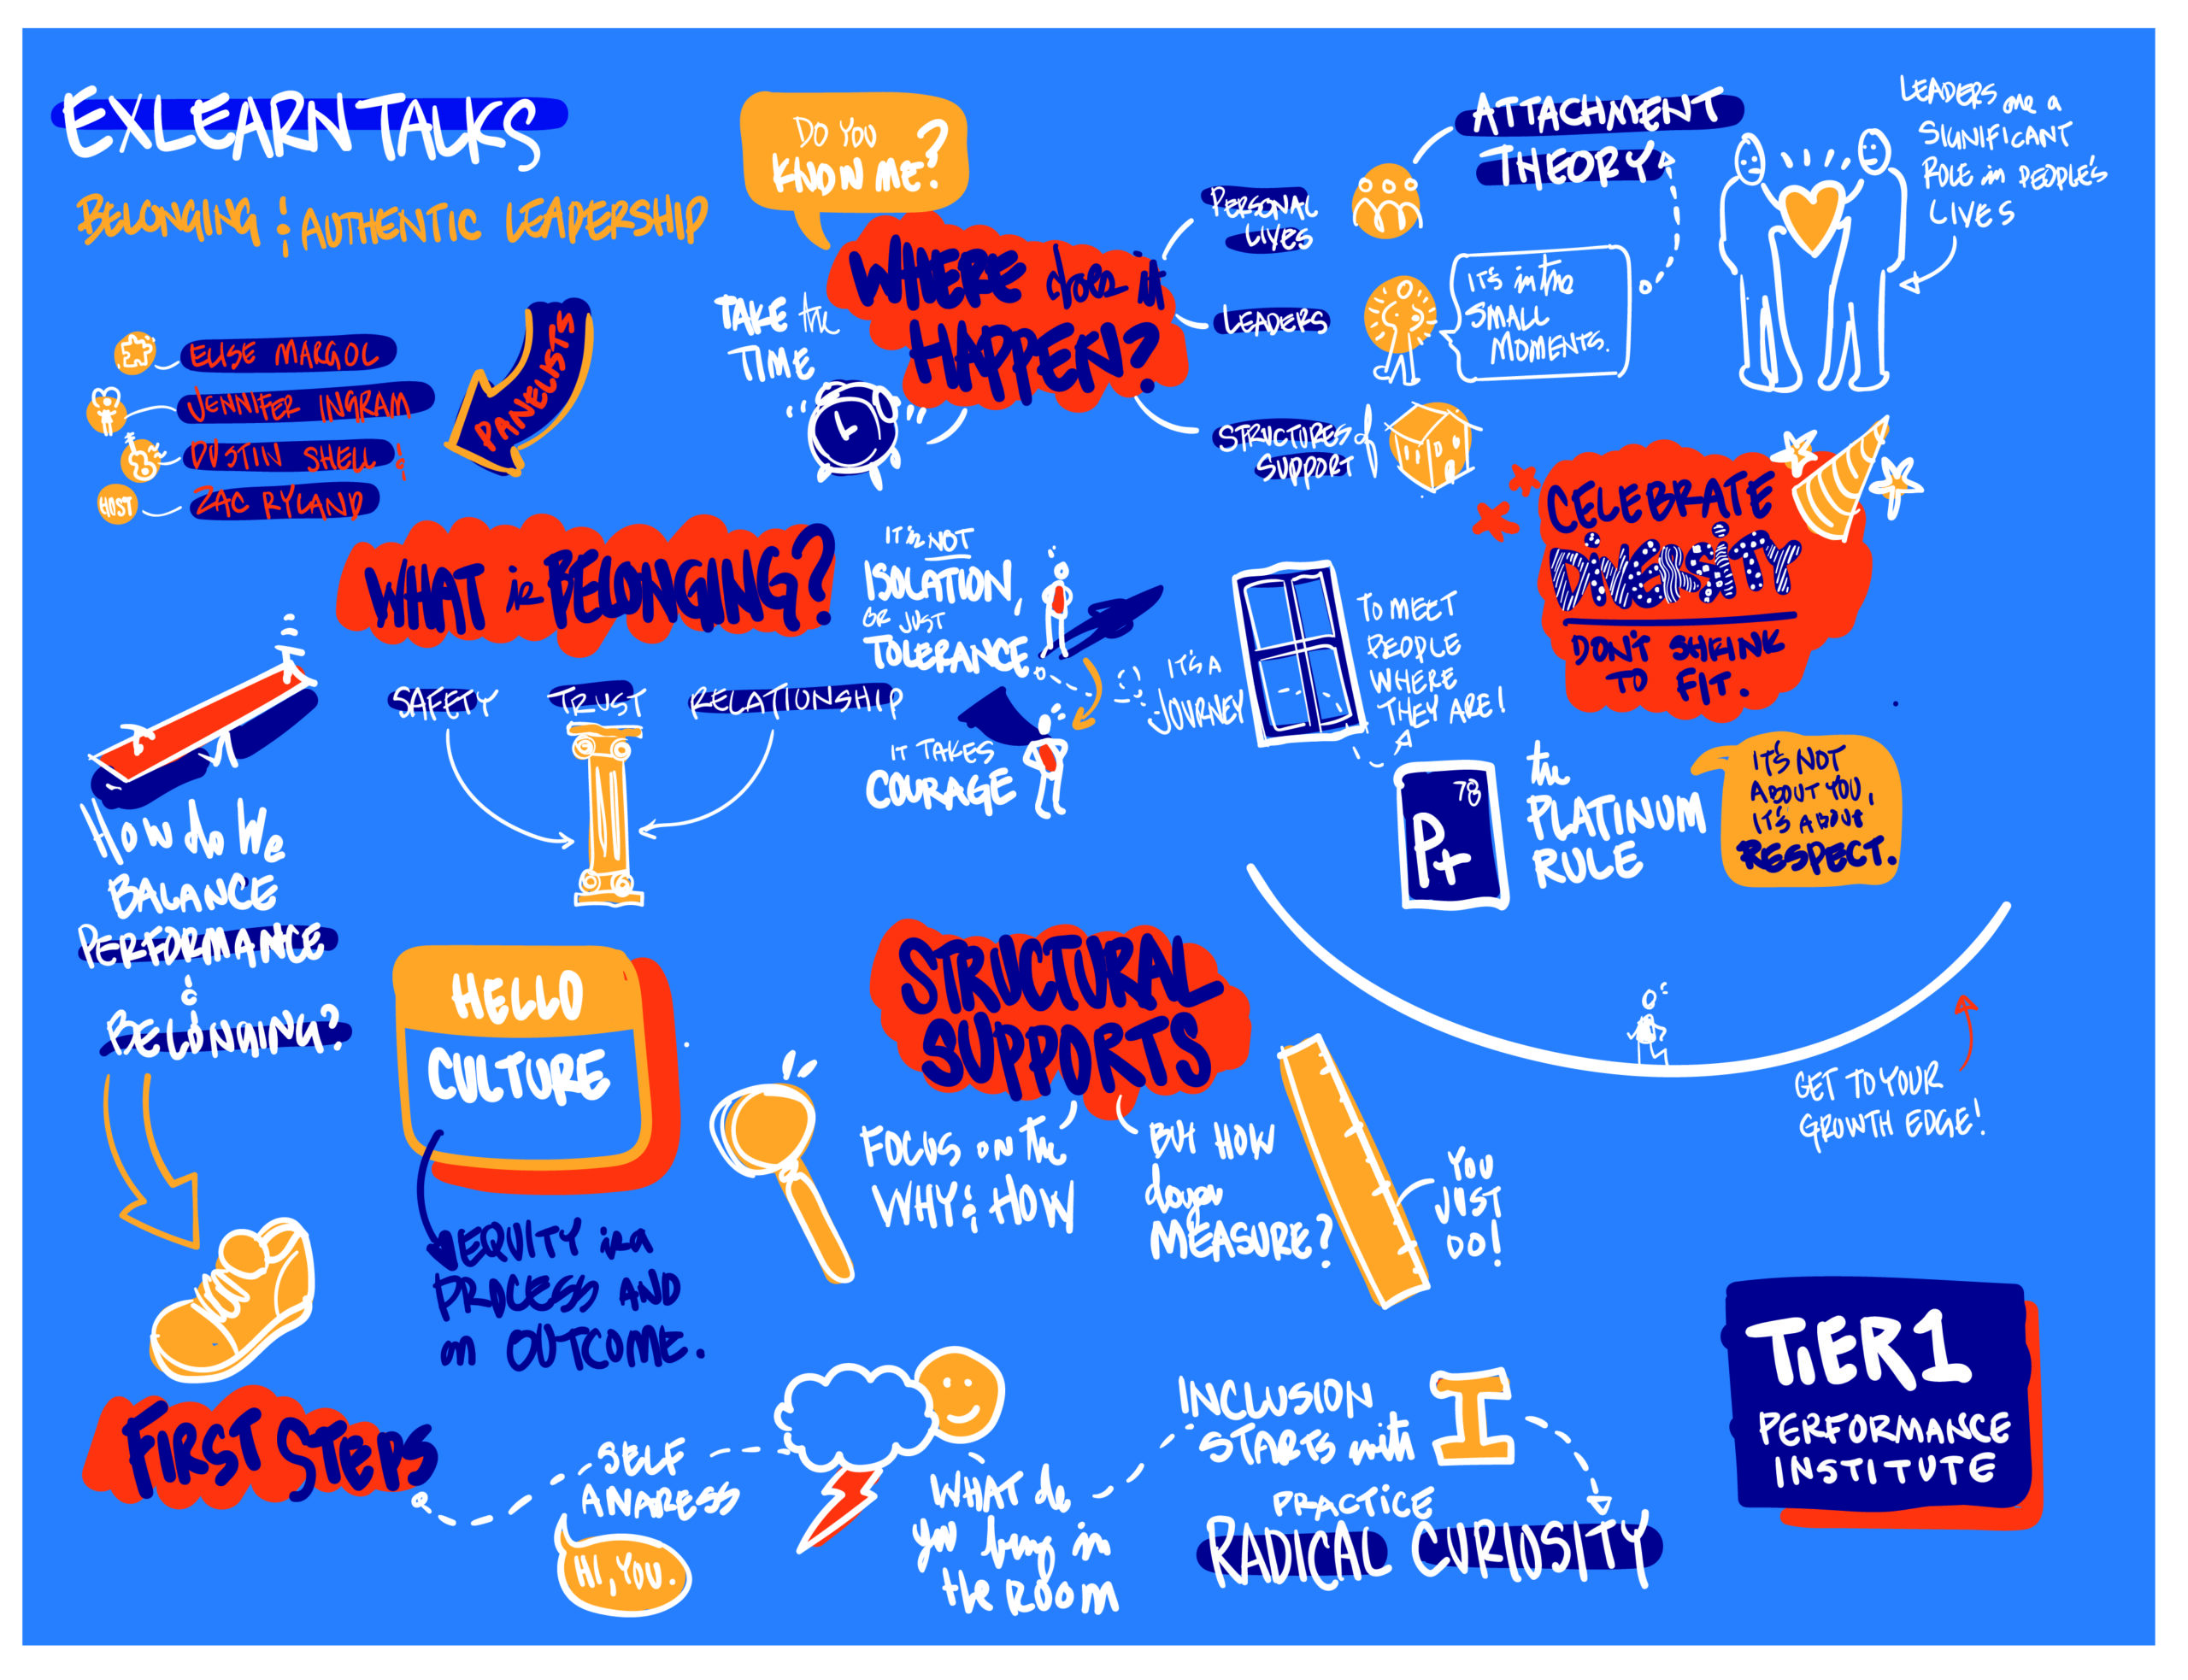 EXLEARN TALKS
BELONGING & AUTHENTIC LEADERSHIP
PANELISTS
ELISE MARGOL
JENNIFER INGRAM
DUSTIN SHELL &
HOST
ZAC RYLAND
DO YOU
KNOW ME?
WHERE does it
HAPPEN?
TAKE the
TIME
PERSONAL
LIVES
LEADERS
STRUCTURES of
SUPPORT
ATTACHMENT
THEORY
IT'S in the
SMALL
MOMENTS.
LEADERS are a
SIGNIFICANT
ROLE in PEOPLE'S
LIVES
CELEBRATE
DIVERSITY
DON'T SHRINK
TO FIT.
WHAT is BELONGING?
SAFETY
TRUST
RELATIONSHIP
IT is NOT
ISOLATION,
OR JUST
TOLERANCE
IT TAKES
COURAGE
IT'S A
JOURNEY
TO MEET
PEOPLE
WHERE
THEY ARE!
78
Pt
the
PLATINUM
RULE
IT'S NOT
ABOUT YOU,
IT'S ABOUT
RESPECT.
HOW do We
BALANCE
PERFORMANCE
&
BELONGING?
HELLO
CULTURE
EQUITY is a
PROCESS AND
an OUTCOME.
STRUCTURAL
SUPPORTS
FOCUS ON the
WHY & HOW
BUT HOW
do you
MEASURE?
YOU
JUST
DO!
GET TO YOUR
GROWTH EDGE!
FIRST STEPS
SELF
AWARESS
HI, YOU.
WHAT do
you bring in
the ROOM
INCLUSION
STARTS with
I
PRACTICE
RADICAL CURIOSITY
TiER1
PERFORMANCE
INSTITUTE